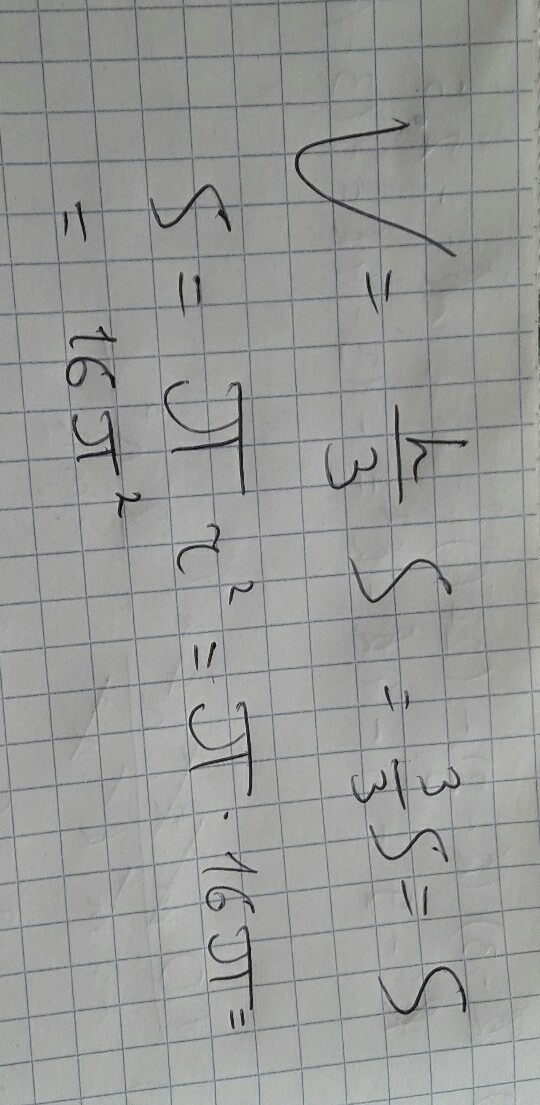 V = h/3 S = 3/3 S = S
S = π r² = π · 16π =
= 16π²